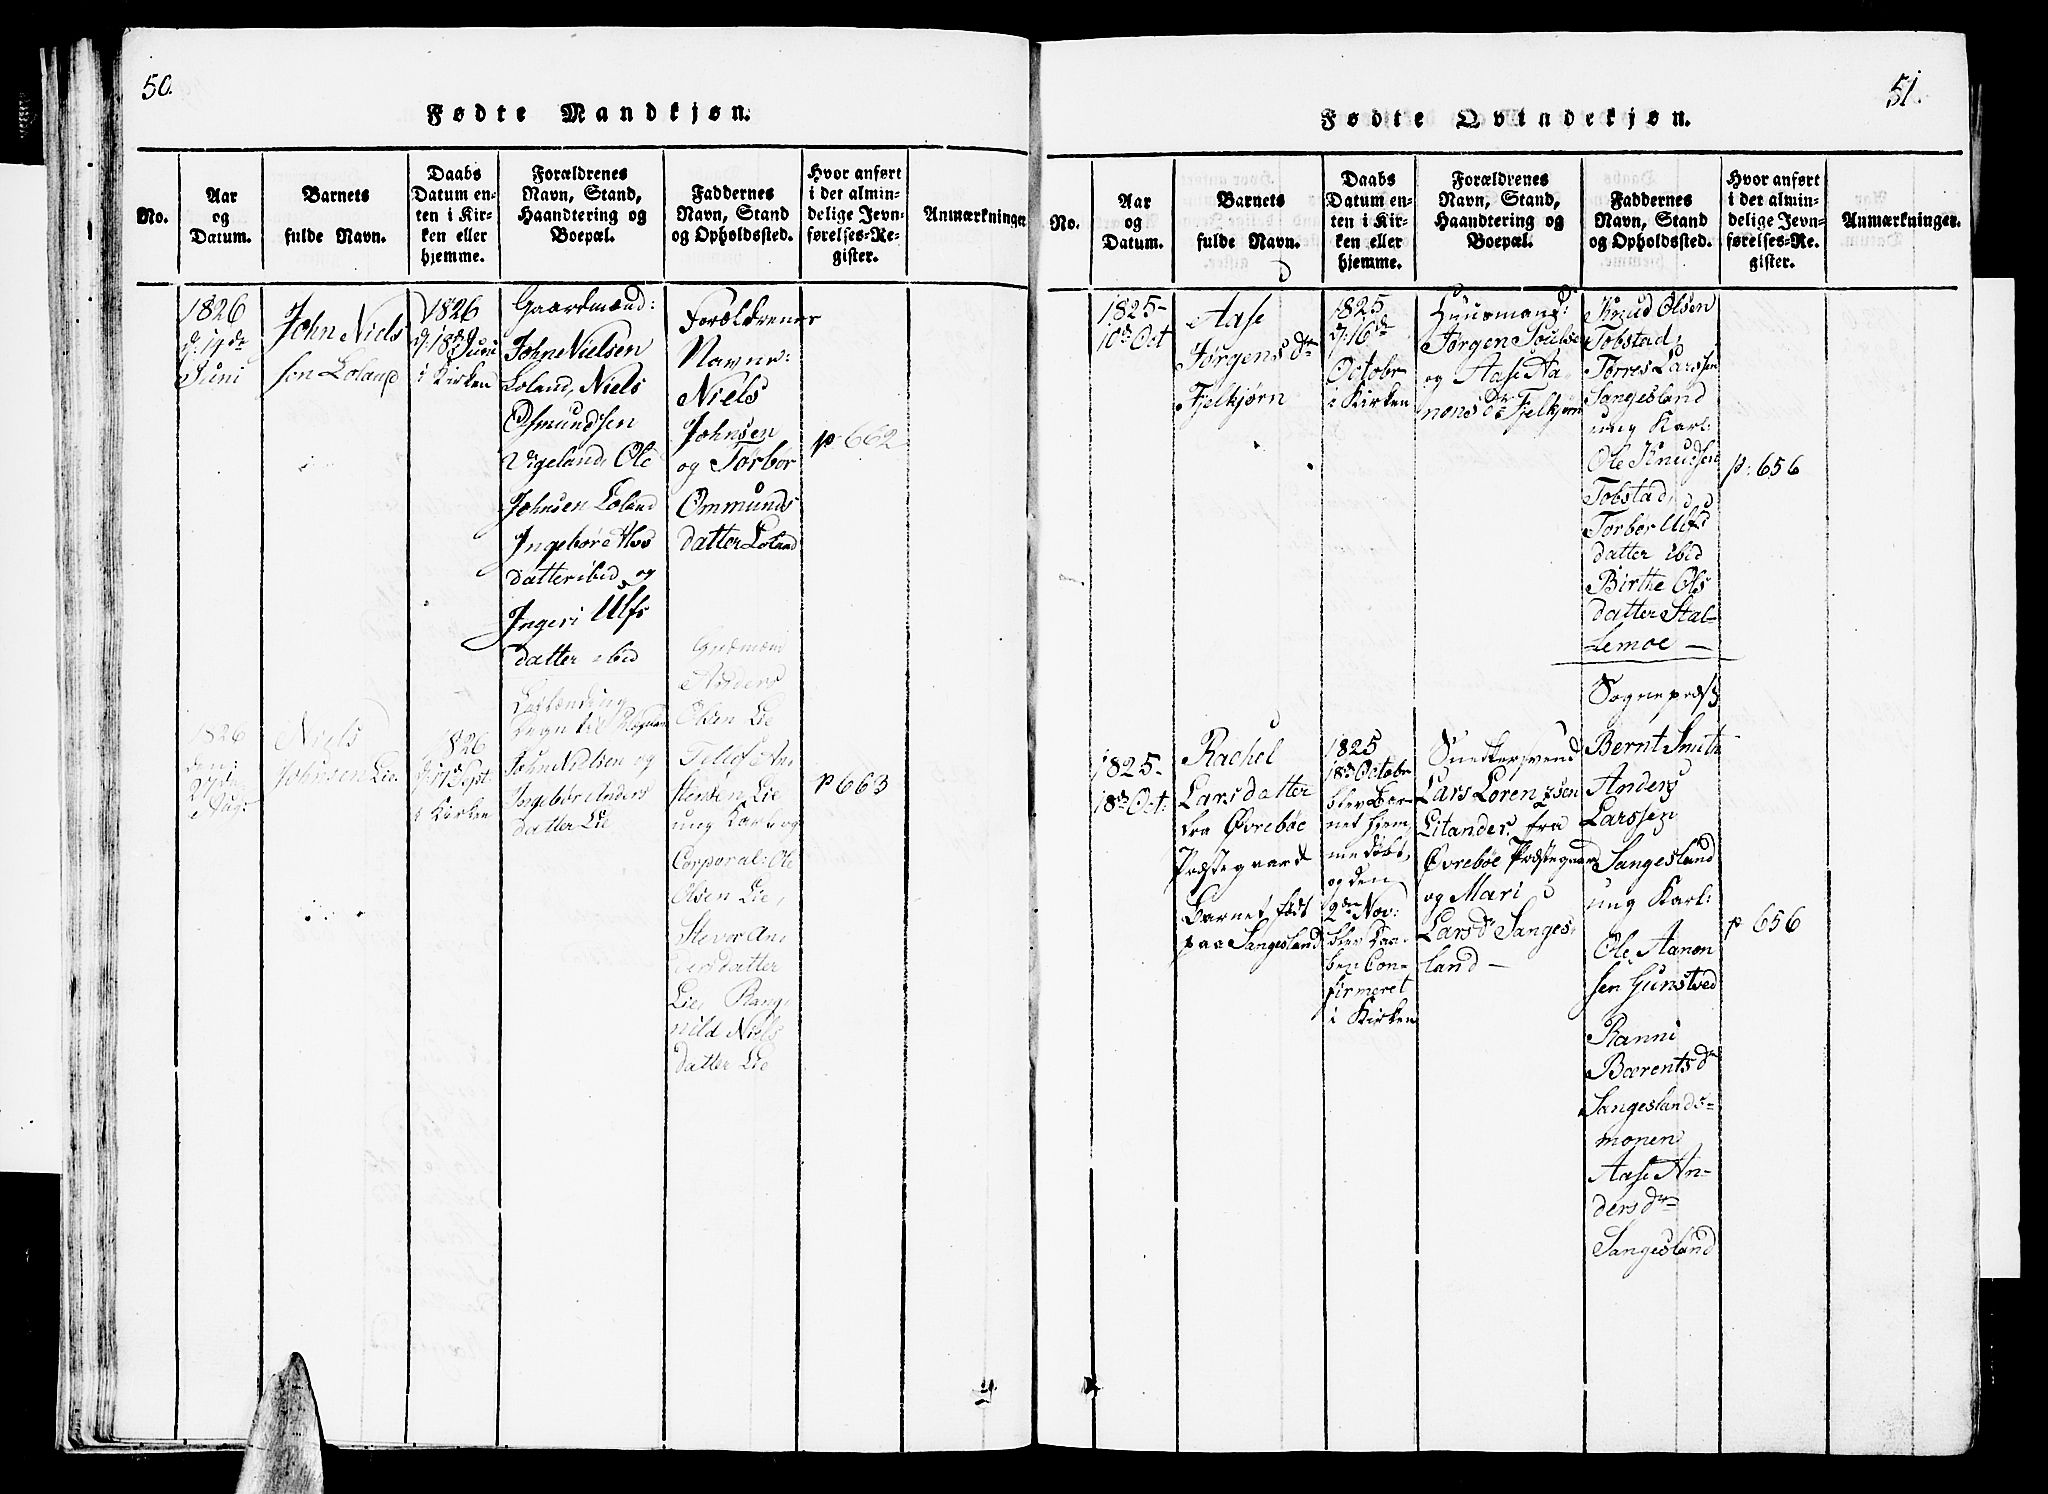 50.
Fødte Mandkjøn.
No.
Aar
og
Datum.
Barnets
fulde Navn.
Daabs
Datum en-
ten i Kir-
ken eller
hjemme.
Forældrenes
Navn, Stand,
Haandtering og
Boepæl.
Faddernes
Navn, Stand
og Opholdssted.
Hvor anført
i det almin-
delige Jevn-
førelses-Re-
gister.
Anmærkninger
1826
Juni
John Niels
sen Loland
1826
d: 18de Juni
i Kirken
Gaardmænd:
John Nielsen
Loland, Niels
Osmundsen
Vigeland, Ole
Johnsen Loland
Ingebør
datter ibid og
Ingeri Ulfs
datter ibid
Forældrenes
Navne:
Niels
Johnsen
og Torbør
Ommunds
datter Loland
p 662
1826
den:
27de
Aug:
Niels
Johnsen Lie
1826
d: 17de Sept
i Kirken
John Nielsen og
Ingebør Anders
datter Lie
Anders
Olsen Lie
Tellef An
stensen Lie
ung Karl og
Corporal: Ole
Olsen Lie,
An
dersdatter
Lie, Rang
nild Niels
datter Lie
p 663
51.
Fødte Qvindekjøn.
No.
Aar
og
Datum.
Barnets
fulde Navn.
Daabs
Datum en-
ten i Kir-
ken eller
hjemme.
Forældrenes
Navn, Stand,
Haandtering og
Boepæl.
Faddernes
Navn, Stand
og Opholdssted.
Hvor anført
i det almin-
delige Jevn-
førelses-Re-
gister.
Anmærkninger.
1825-
10de Oct
Aase
Jørgens dr
Fjelkjørn
1825
d: 16de
Octobr
i Kirken
Huusmand:
Jørgen
og Aase Aa
nons Dr Fjelkjørn
Knud Olsen
Tobstad,
Torres Larssen
Sangesland
ung Karl:
Ole Knudsen
Tobstad,
Torbor Ulfs
datter ibid
Birthe Ols
datter Stal-
lemoe —
p: 656
1825-
18de Oct:
Rachel
Larsdatter
fra Øvrebøe
Præstegaard
Barnet født
paa Sangesland
1825
18de Octobr
blev Bar-
net hjem
me døbt,
og den
2den Nov:
blev Daa-
ben Con-
firmeret
i Kirken
Snedkersvend
Lars Lorenzsen
Litander, fra
Øvrebøe Præstegaard
og Mari
Lars dr Sanges
land —
Sognepræst
Bernt Smith
Anders
Larssen
Sangesland
ung Karl:
Ole Aanon
sen Gunstved
Ranni
Bærents dr
Sangeslands-
monen
Aase An-
ders dr
Sangesland
p 656